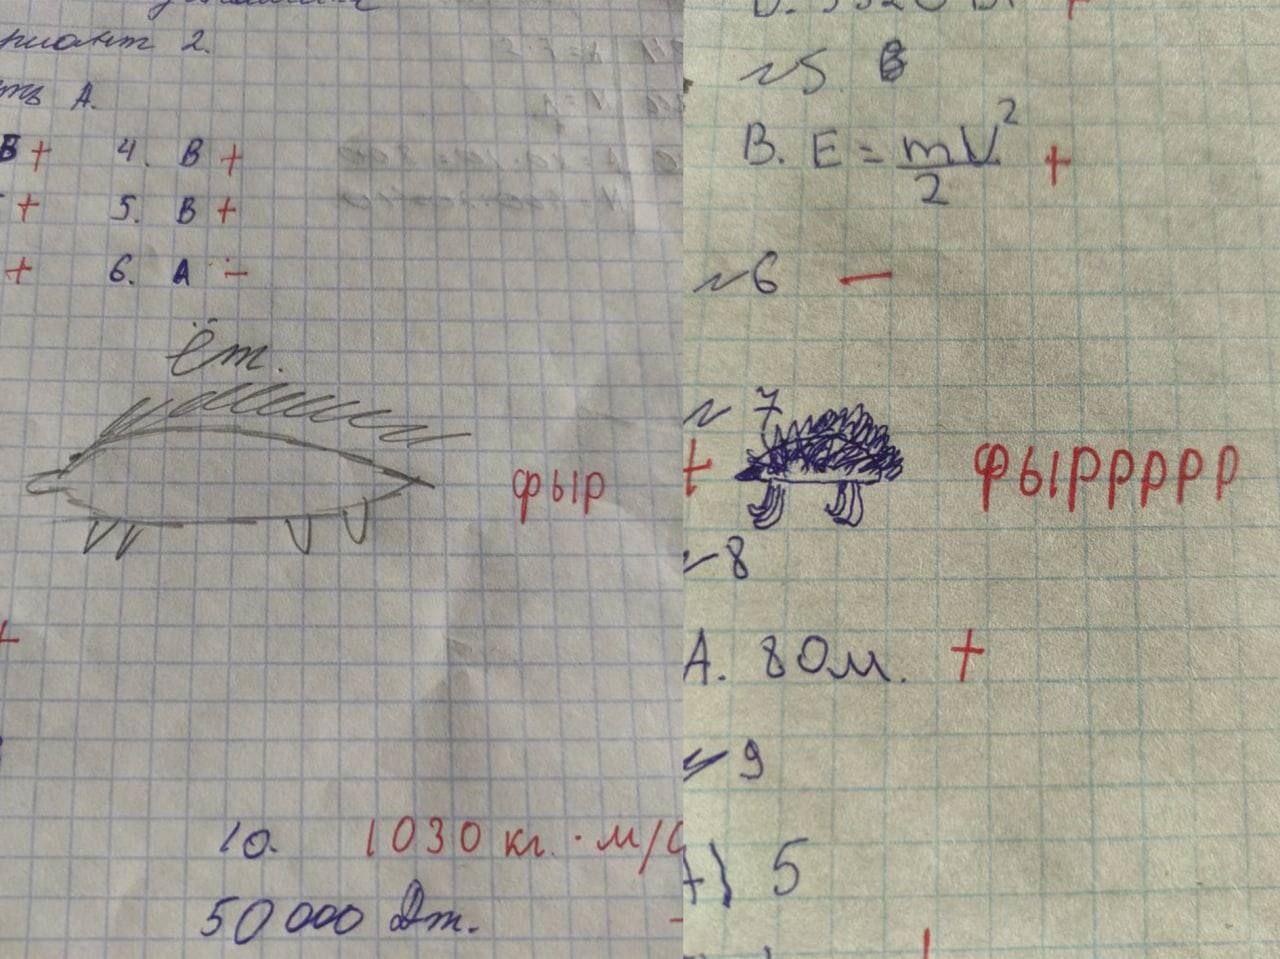 риант 2.
ть А.
В + 4. В +
+ 5. В +
+ 6. А -
ёж.
фыр
+
10. 1030 кг. · м/с
50 000 Дж.
№5 В
В. E = mV²/2 +
№6 -
№7
+ фырррррр
№8
А. 80м. +
№9
А) 5